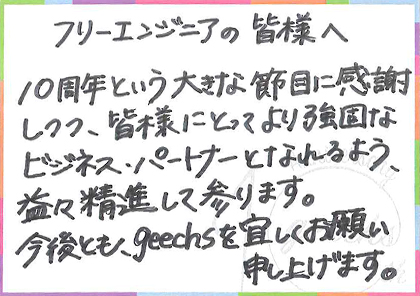 フリーエンジニアの皆様へ
10周年という大きな節目に感謝
しつつ、皆様にとってより強固な
ビジネス・パートナーとなれるよう、
益々精進して参ります。
今後とも、geechsを宜しくお願い
申し上げます。